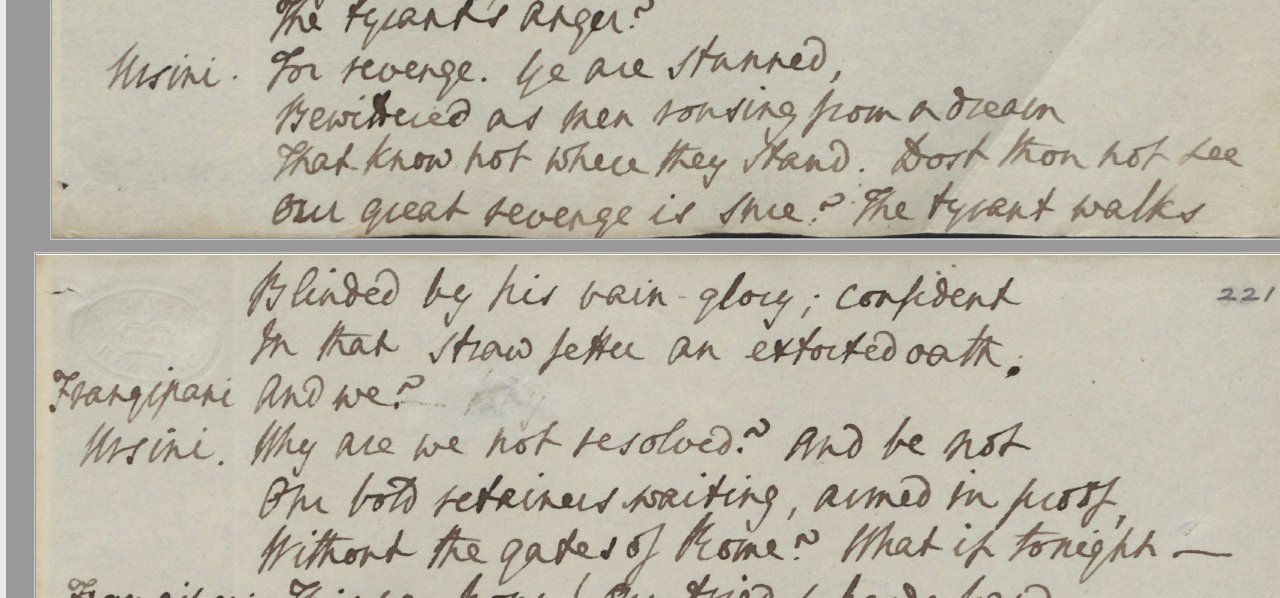 The tyrant's anger?
Ursini. For revenge. Ye are stunned,
Bewildered as men rousing from a dream
That know not where they stand. Dost thou not see
Our great revenge is sure? The tyrant walks
Blinded by his vain-glory; confident
221
In that straw fetter an extorted oath.
Frangipani And we?
Ursini. Why are we not resolved? And be not
Our bold retainers waiting, armed in proof,
Without the gates of Rome? What if tonight —